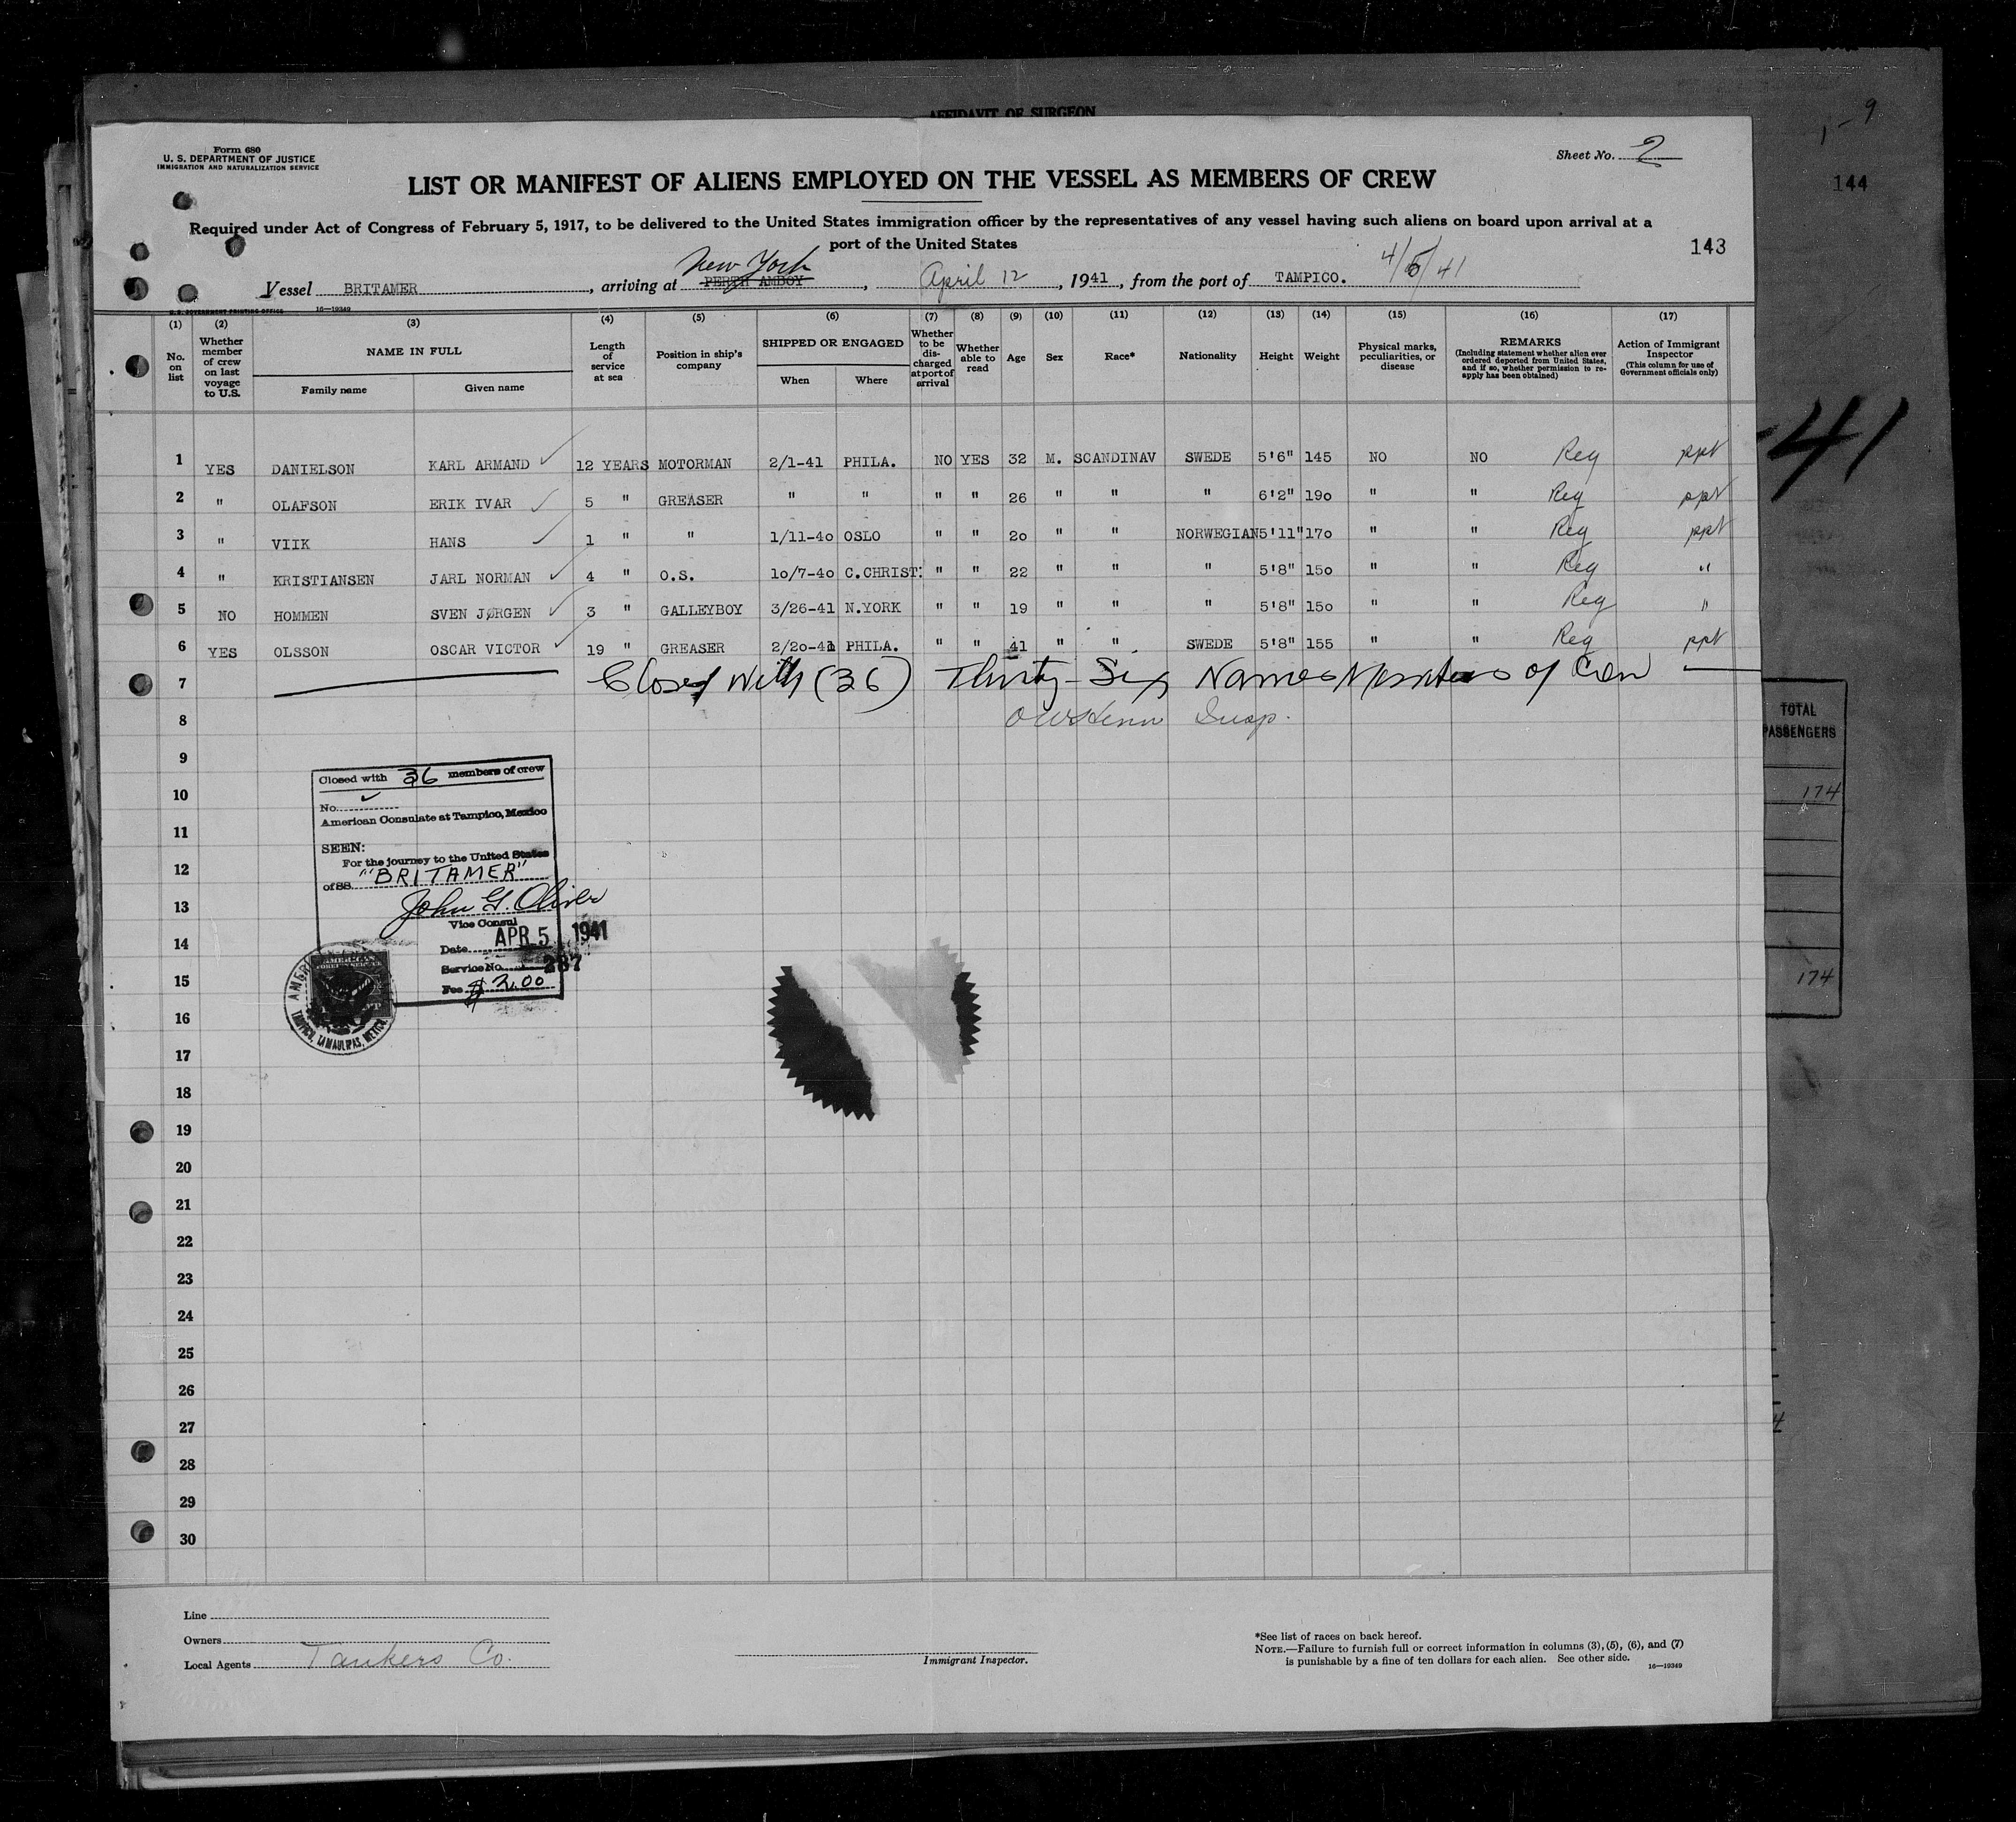 AFFIDAVIT OF SURGEON
1 - 9
144
Form 680
U. S. DEPARTMENT OF JUSTICE
IMMIGRATION AND NATURALIZATION SERVICE
Sheet No. 2
LIST OR MANIFEST OF ALIENS EMPLOYED ON THE VESSEL AS MEMBERS OF CREW
Required under Act of Congress of February 5, 1917, to be delivered to the United States immigration officer by the representatives of any vessel having such aliens on board upon arrival at a
port of the United States
143
New York
4/5/41
Vessel BRITAMER, arriving at PERTH AMBOY, April 12, 1941, from the port of TAMPICO.
U. S. GOVERNMENT PRINTING OFFICE 16—19349
(1) (2) (3) (4) (5) (6) (7) (8) (9) (10) (11) (12) (13) (14) (15) (16) (17)
No. on list
Whether member of crew on last voyage to U.S.
NAME IN FULL
Family name
Given name
Length of service at sea
Position in ship's company
SHIPPED OR ENGAGED
When
Where
Whether to be discharged at port of arrival
Whether able to read
Age
Sex
Race*
Nationality
Height
Weight
Physical marks, peculiarities, or disease
REMARKS
(Including statement whether alien ever ordered deported from United States, and if so, whether permission to re-apply has been obtained)
Action of Immigrant Inspector
(This column for use of Government officials only)
1 YES DANIELSON KARL ARMAND ✓ 12 YEARS MOTORMAN 2/1-41 PHILA. NO YES 32 M. SCANDINAV SWEDE 5'6" 145 NO NO Reg ppt
2 " OLAFSON ERIK IVAR ✓ 5 " GREASER " " " " 26 " " " 6'2" 190 " " Reg ppt
3 " VIIK HANS ✓ 1 " " 1/11-40 OSLO " " 20 " " NORWEGIAN 5'11" 170 " " Reg ppt
4 " KRISTIANSEN JARL NORMAN ✓ 4 " O.S. 10/7-40 C.CHRIST. " " 22 " " " 5'8" 150 " " Reg "
5 NO HOMMEN SVEN JØRGEN ✓ 3 " GALLEYBOY 3/26-41 N.YORK " " 19 " " " 5'8" 150 " " Reg "
6 YES OLSSON OSCAR VICTOR ✓ 19 " GREASER 2/20-41 PHILA. " " 41 " " SWEDE 5'8" 155 " " Reg ppt
7 Closed With (36) Thirty-Six Names Members of Crew
8 Insp.
9
10
11
12
13
14
15
16
17
18
19
20
21
22
23
24
25
26
27
28
29
30
Closed with 36 members of crew
No. ✓
American Consulate at Tampico, Mexico
SEEN:
For the journey to the United States
of SS "BRITAMER"
John G. Oliver
Vice Consul
Date APR 5 1941
Service No. 287
Fee $ 2.00
TAMPICO, TAMAULIPAS, MEXICO
-41
TOTAL
PASSENGERS
174
174
Line
Owners
Local Agents Tankers Co.
Immigrant Inspector.
*See list of races on back hereof.
NOTE.—Failure to furnish full or correct information in columns (3), (5), (6), and (7)
is punishable by a fine of ten dollars for each alien. See other side.
16—19349